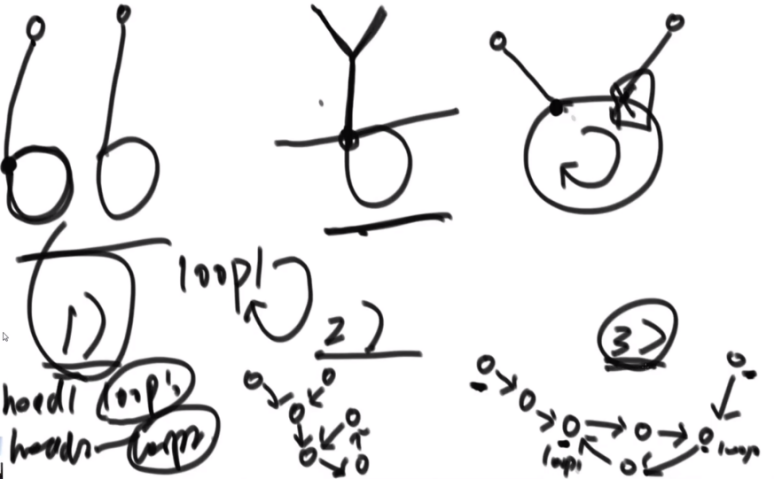 loop1
1)
2)
3)
head1 loop1
head2 loop2
loop1
loop2